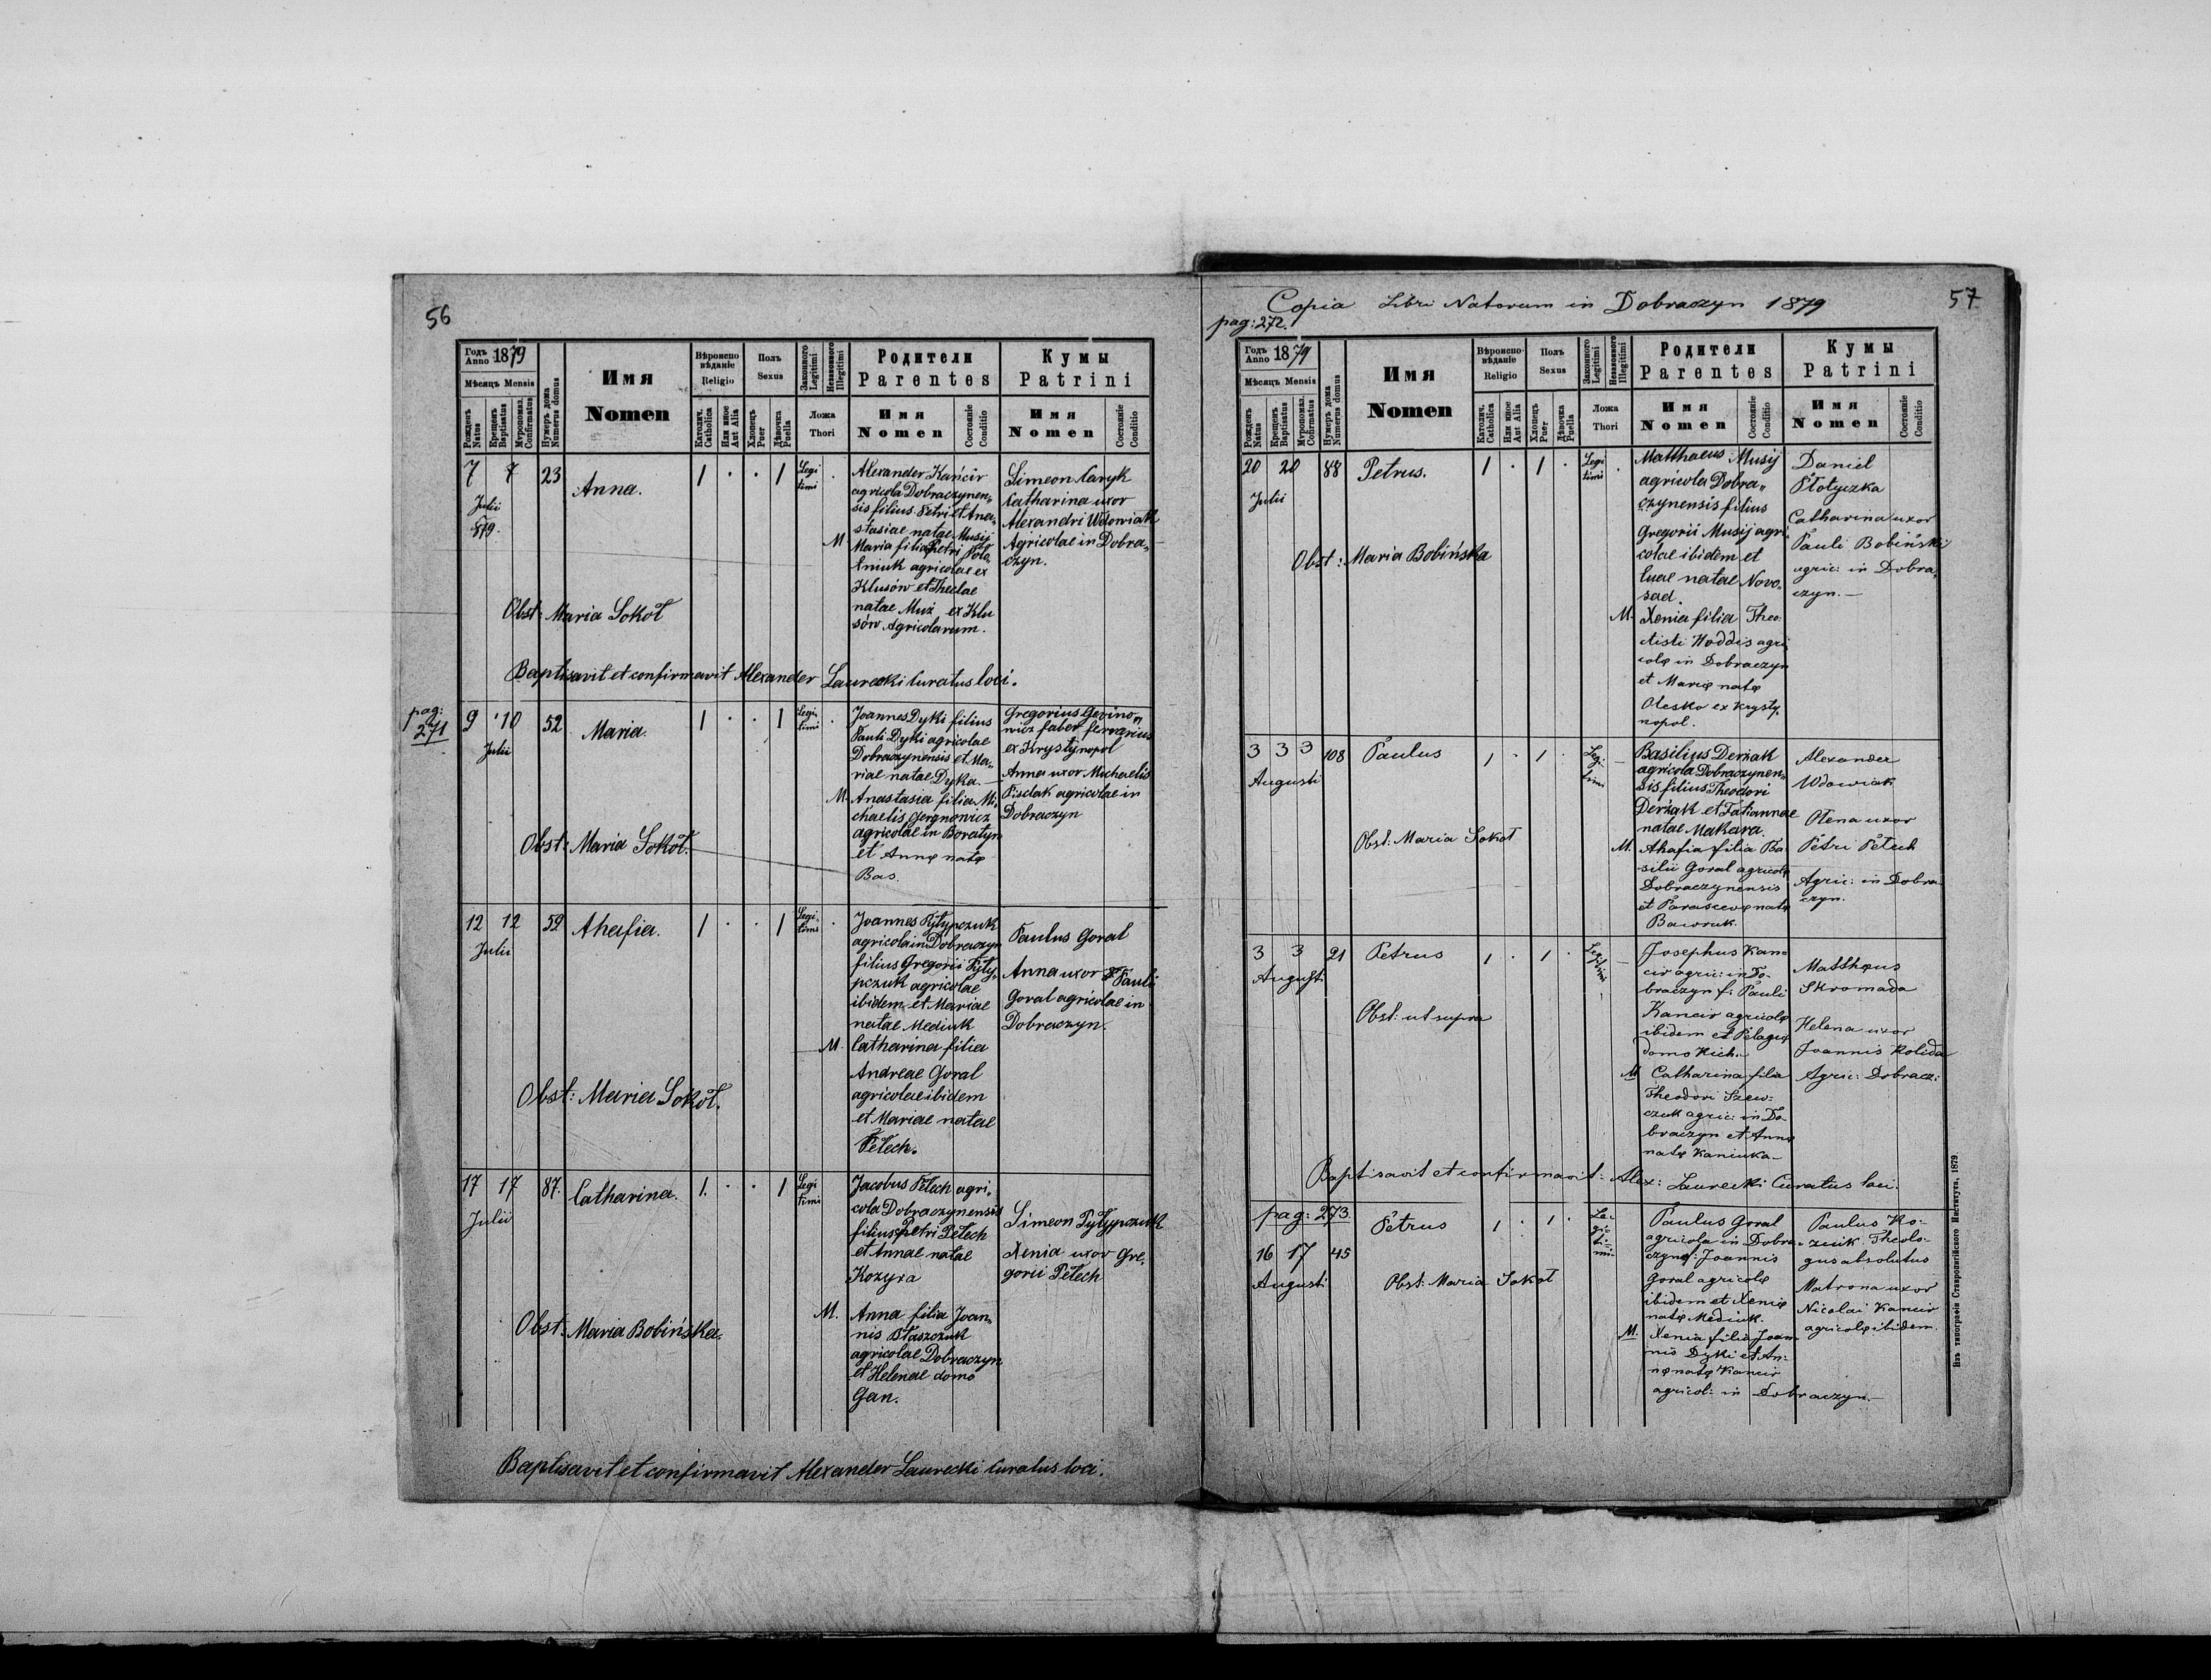 56
Годъ Anno 1879
Мѣсяцъ Mensis
Рожденъ Natus
Крещенъ Baptisatus
Мѵропомаз. Confirmatus
Нумеръ дома Numerus domus
Имя
Nomen
Вѣроиспо-
вѣданіе
Religio
Католич. Catholica
Или иное Aut Alia
Полъ
Sexus
Хлопецъ Puer
Дѣвочка Puella
Законного Legitimi
Незаконного Illegitimi
Ложа
Thori
Родители
Parentes
Имя
Nomen
Состояніе Conditio
Кумы
Patrini
Имя
Nomen
Состояніе Conditio
7 7 23 Anna. 1 . . 1 Legi
timi .
Julii
879.
Alexander Kańcir
agricola Dobraczynen„
sis filius Petri et Ana„
stasiae natae Musij
M Maria filia Petri Pola„
niuk agricolae ex
Klusów et Theclae
natae Muż ex Klu
sów Agricolarum.
Simeon Caryk
Catharina uxor
Alexandri Wdowiak
Agricolae in Dobra„
czyn.
Obst: Maria Sokoł
Baptisavit et confirmavit Alexander Laurecki Curatus loci.
pag:
271
9 10 52 Maria. 1 . . 1 Legi„
timi .
Julii
Joannes Dyki filius
Pauli Dyki agricolae
Dobraczynensis et Ma„
riae natae Dyka.
M. Anastasia filia Mi„
chaelis Gergnowicz
agricolae in Boratyn
et Annę natę
Bas.
Gregorius Gevino„
wicz faber ferrarius
ex Krystynopol
Anna uxor Michaelis
Pisclak agricolae in
Dobraczyn
Obst: Maria Sokoł.
12 12 59 Ahafia. 1 . . 1 Legi„
timi .
Julii
Joannes Pyłypczuk
agricola in Dobraczyn
filius Gregorii Pyły„
pczuk agricolae
ibidem et Mariae
natae Mediuk
M. Catharina filia
Andreae Goral
agricolae ibidem
et Mariae natae
Pełech.
Paulus Goral
Anna uxor Pauli
Goral agricolae in
Dobraczyn.
Obst: Maria Sokoł.
17 17 87. Catharina. 1. . . 1 Legi
timi
Julii
Jacobus Pełech agri„
cola Dobraczynensis
filius Petri Pełech
et Annae natae
Kozyra
M. Anna filia Joan„
nis Błaszczuk
agricolae Dobraczyn
et Helenae domo
Gan.
Simeon Pyłypczuk
Xenia uxor Gre„
gorii Pełech
Obst: Maria Bobińska.
Baptisavit et confirmavit Alexander Laurecki Curatus loci.
Copia Libri Natorum in Dobraczyn 1879
57
pag: 272.
Годъ Anno 1879
Мѣсяцъ Mensis
Рожденъ Natus
Крещенъ Baptisatus
Мѵропомаз. Confirmatus
Нумеръ дома Numerus domus
Имя
Nomen
Вѣроиспо-
вѣданіе
Religio
Католич. Catholica
Или иное Aut Alia
Полъ
Sexus
Хлопецъ Puer
Дѣвочка Puella
Законного Legitimi
Незаконного Illegitimi
Ложа
Thori
Родители
Parentes
Имя
Nomen
Состояніе Conditio
Кумы
Patrini
Имя
Nomen
Состояніе Conditio
20 20 88 Petrus. 1 . 1 . Legi
timi .
Julii
Matthaeus Musij
agricola Dobra„
czynensis filius
Gregorii Musij agri
colae ibidem et
Luae natae Novo„
sad.
M. Xenia filia Theo:
ctisti Hoddis agri
colę in Dobraczyn
et Marię natę
Olesko ex Krysty„
nopol.
Daniel
Płotyczka
Catharina uxor
Pauli Bobiński
agric: in Dobra„
czyn.—
Obst: Maria Bobińska
3 3 3 108 Paulus 1 . 1 . Legi„
timi —
Augusti
Basilius Derżak
agricola Dobraczynen„
sis filius Theodori
Derżak et Tatiannae
natae Makara.
M. Ahafia filia Ba„
silii Goral agricolę
Dobraczynensis
et Parascevę natę
Baworuk.
Alexander
Wdowiak
Olena uxor
Petri Pełech
Agric: in Dobra-
czyn.
Obst: Maria Sokoł
3 3 21 Petrus 1 . 1 . Legitimi —
Augusti
Josephus Kan„
cir agric: in Do-
braczyn f: Pauli
Kancir agricolę
ibidem et Pelagię
domo Kich.
M Catharina filia
Theodori Szew:
czuk agric: in Do-
braczyn et Annę
natę Kaniuka—
Matthęus
Skromada
Helena uxor
Joannis Kolida
Agric: Dobracz:
Obst: ut supra
Baptisavit et confirmavit: Alex: Laurecki Curatus loci.
pag: 273.
16 17 45 Petrus 1 . 1 . Le-
gi-
ti-
mi-
Augusti
Paulus Goral
agricola in Dobra-
czyn f: Joannis
Goral agricolę
ibidem et Xenię
natę Mediuk.
M. Xenia filia Joan
nis Dyki et An-
nę natę Kancir
agricol: in Dobraczyn.—
Paulus Ko-
zeik Theolo-
gus absolutus
Matrona uxor
Nicolai Kancir
agricolę ibidem.
Obst: Maria Sokoł
Изъ типографіи Ставропигійского Института, 1879.